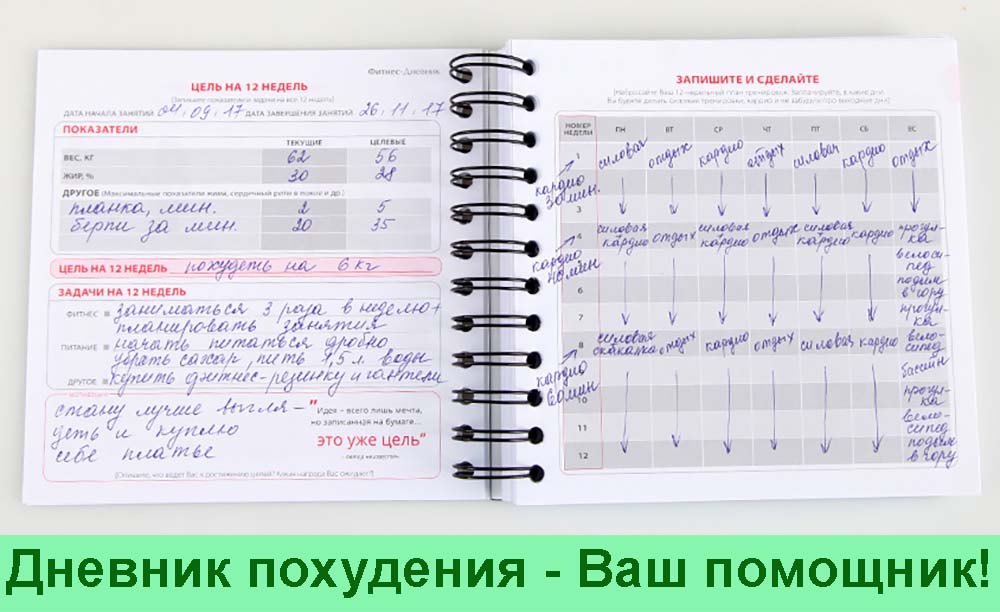 Фитнес-Дневник
ЦЕЛЬ НА 12 НЕДЕЛЬ
(Запишите показатели и задачи на все 12 недель)
ДАТА НАЧАЛА ЗАНЯТИЙ 04.09.17 ДАТА ЗАВЕРШЕНИЯ ЗАНЯТИЙ 26.11.17
ПОКАЗАТЕЛИ
ТЕКУЩИЕ ЦЕЛЕВЫЕ
ВЕС, КГ 62 56
ЖИР, % 30 28
ДРУГОЕ (Максимальные показатели жима, сердечный ритм в покое и др.)
планка, мин. 2 5
берпи за мин. 20 35
ЦЕЛЬ НА 12 НЕДЕЛЬ похудеть на 6 кг
ЗАДАЧИ НА 12 НЕДЕЛЬ
ФИТНЕС заниматься 3 раза в неделю+
планировать занятия
ПИТАНИЕ начать питаться дробно
убрать сахар, пить 1,5 л. воды
ДРУГОЕ купить фитнес-резинку и гантели
МОТИВАЦИЯ
стану лучше выгля-
деть и куплю
себе платье
"Идея - всего лишь мечта,
но записанная на бумаге...
это уже цель"
(Опишите, что ведет Вас к достижению целей? Какая награда Вас ожидает?)
ЗАПИШИТЕ И СДЕЛАЙТЕ
(Набросайте Ваш 12-недельный план тренировок. Запланируйте, в какие дни
Вы будете делать силовые тренировки, кардио и не забудьте про выходные дни)
НОМЕР НЕДЕЛИ ПН ВТ СР ЧТ ПТ СБ ВС
1 силовая отдых кардио отдых силовая кардио отдых
кардио
30 мин.
3
4 силовая отдых силовая отдых силовая кардио прогул-
кардио кардио кардио ка
кардио
40 мин
велоси-
пед
6 подъем
в гору
7 прогул-
ка
8 силовая отдых кардио отдых силовая кардио вело-
скакалка сипед
кардио
60 мин
бассейн
10 прогул-
ка
11 вело-
сипед
12 подъем
в гору
Дневник похудения - Ваш помощник!